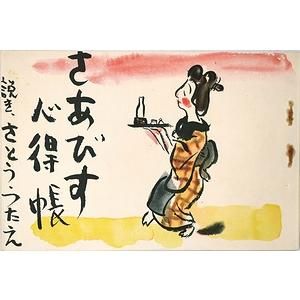 さあびす
心得帳
説き、さとううたえ